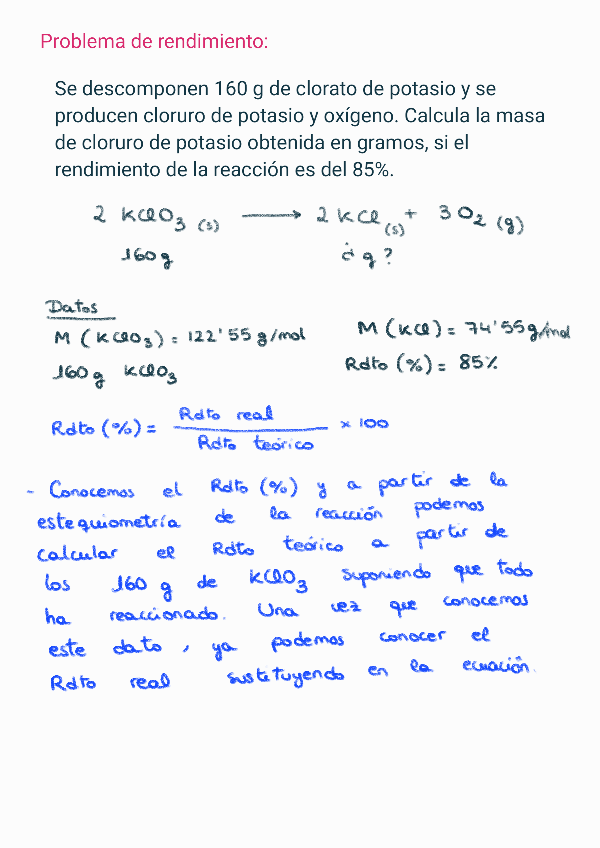 Problema de rendimiento:
Se descomponen 160 g de clorato de potasio y se
producen cloruro de potasio y oxígeno. Calcula la masa
de cloruro de potasio obtenida en gramos, si el
rendimiento de la reacción es del 85%.
2 KClO3 (s) ⟶ 2 KCl (s) + 3 O2 (g)
160 g ¿ g ?
Datos
M ( KClO3 ) = 122'55 g/mol M ( KCl ) = 74'55 g/mol
160 g KClO3 Rdto (%) = 85%
Rdto (%) = Rdto real / Rdto teórico × 100
- Conocemos el Rdto (%) y a partir de la
estequiometría de la reacción podemos
calcular el Rdto teórico a partir de
los 160 g de KClO3 suponiendo que todo
ha reaccionado. Una vez que conocemos
este dato, ya podemos conocer el
Rdto real sustituyendo en la ecuación.